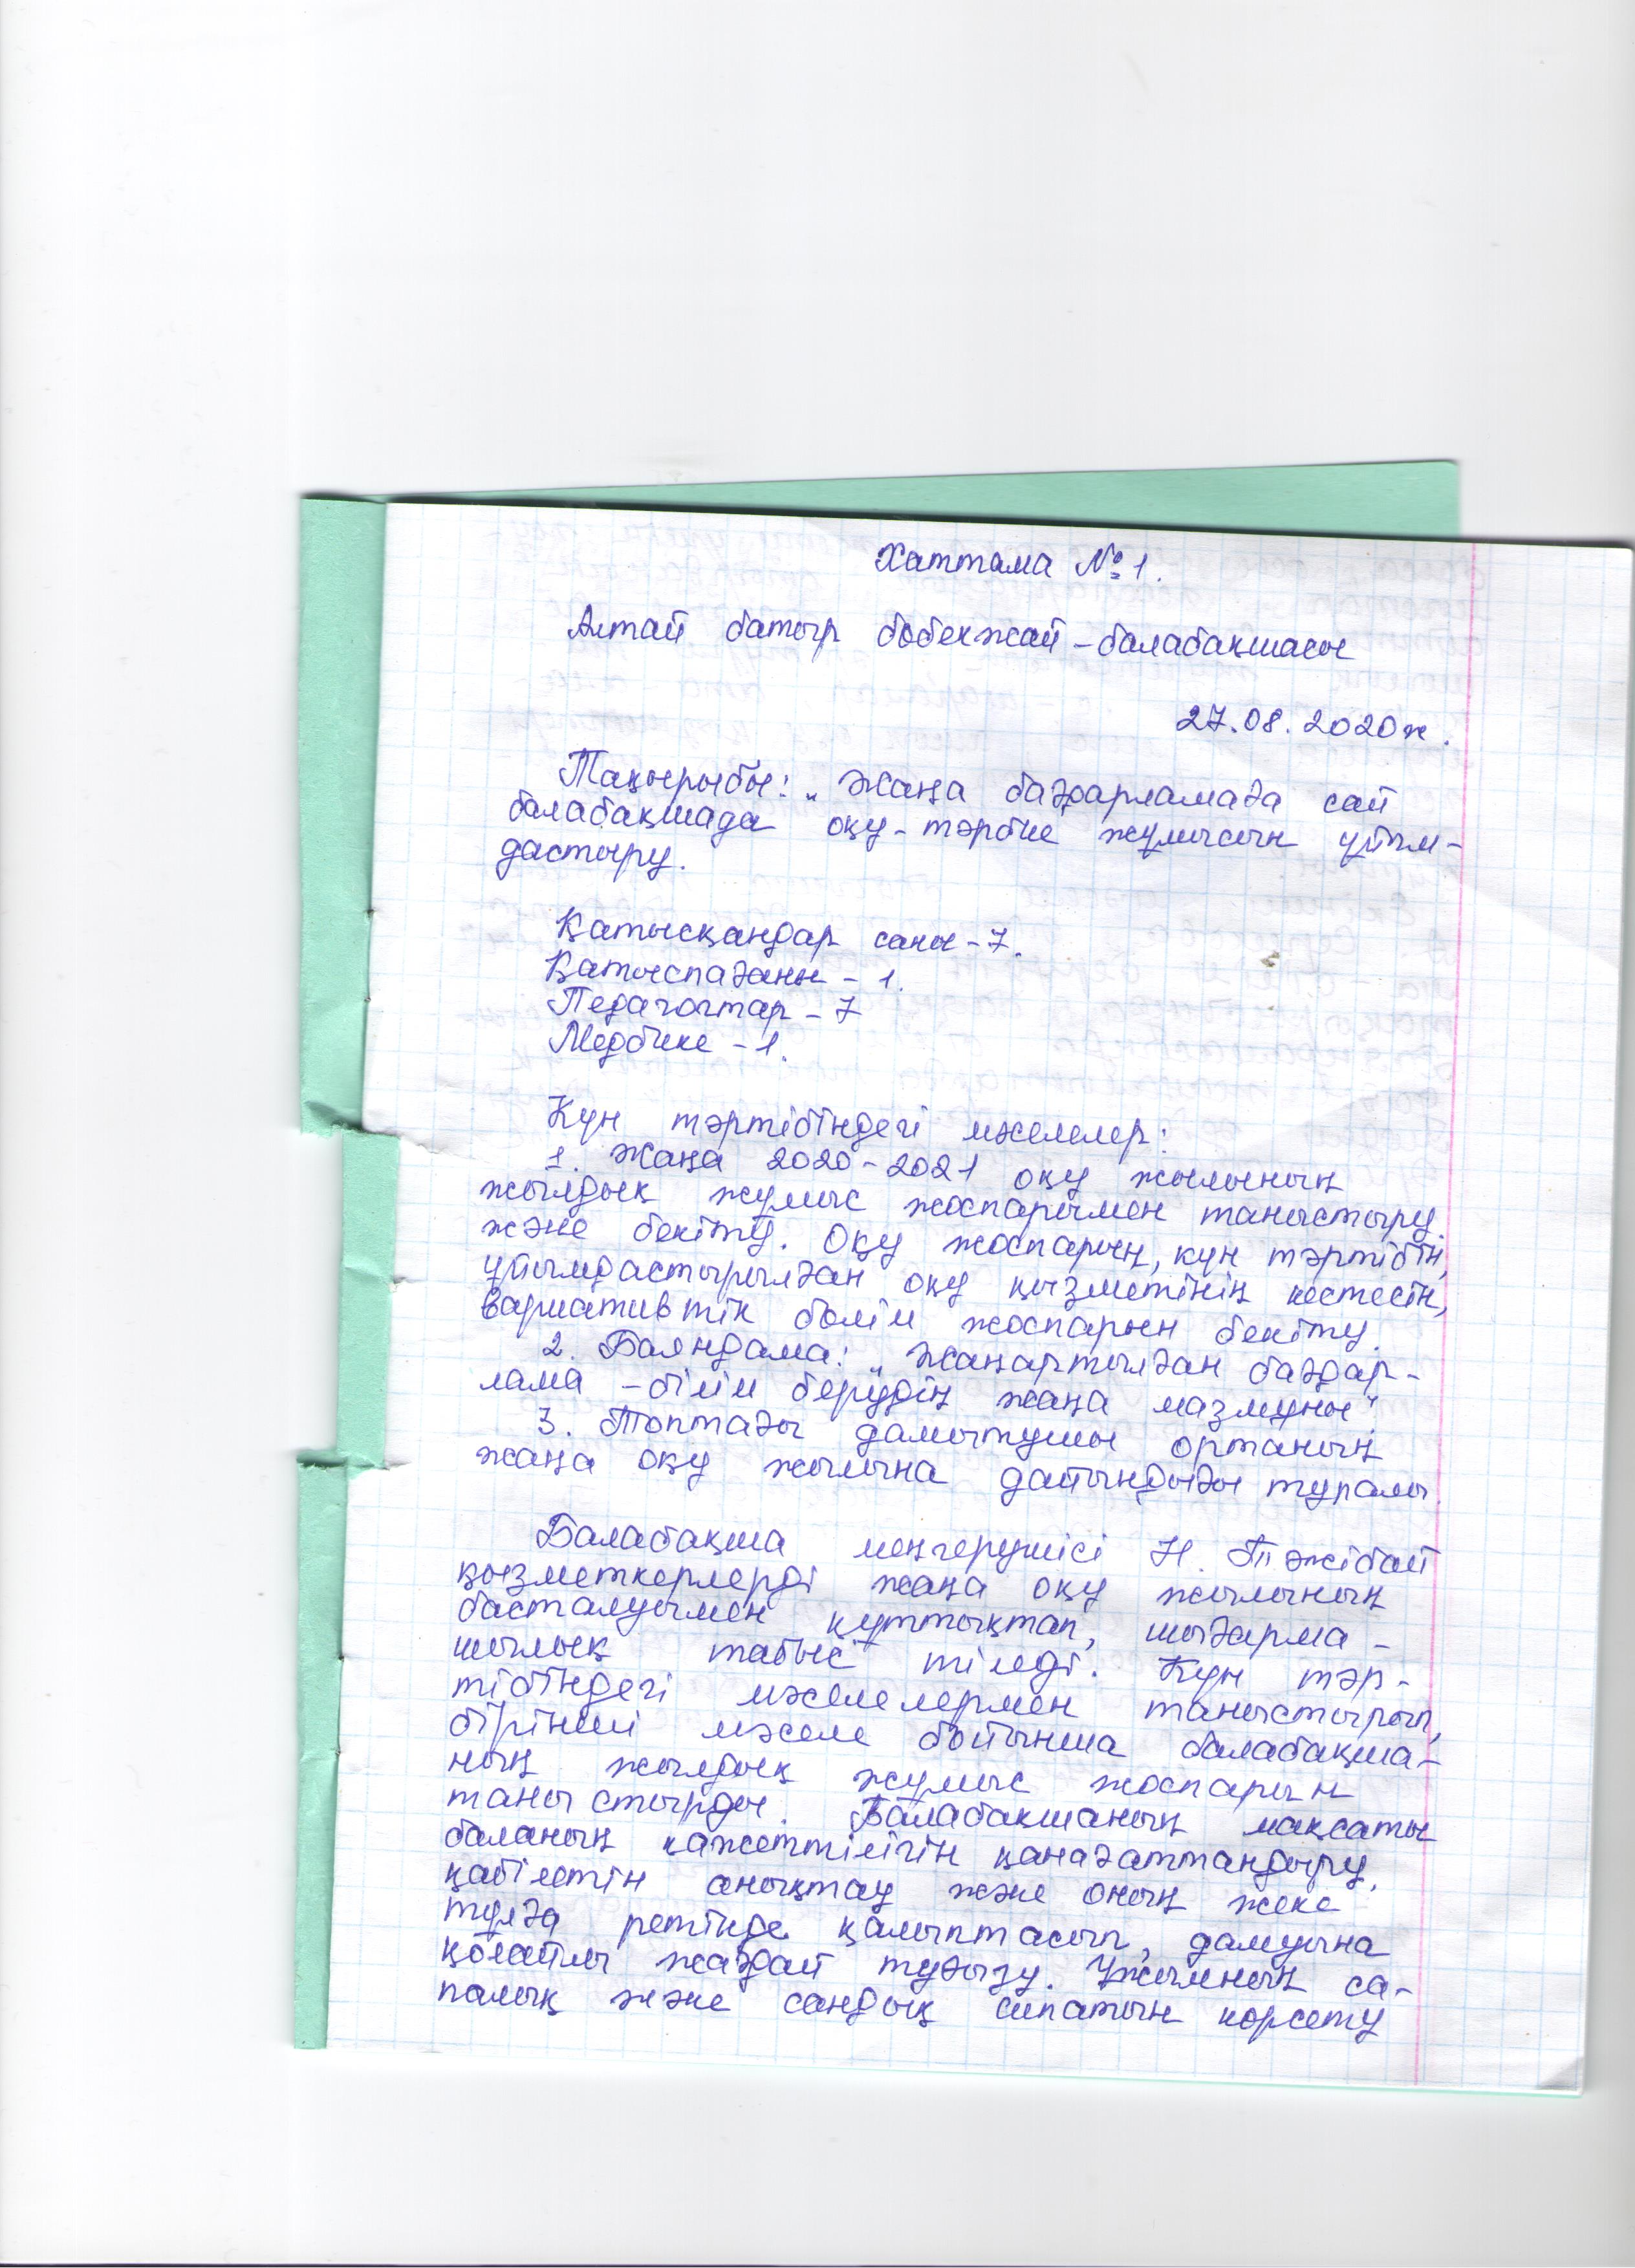 Хаттама №1.
Алтай батыр бөбекжай-балабақшасы
27.08.2020ж.
Тақырыбы: „Жаңа бағдарламаға сай
балабақшада оқу-тәрбие жұмысын ұйым-
дастыру.
Қатысқандар саны-7.
Қатыспағаны-1.
Педагогтар-7
Медбике-1.
Күн тәртібіндегі мәселелер:
1. Жаңа 2020-2021 оқу жылының
жылдық жұмыс жоспарымен таныстыру
және бекіту. Оқу жоспарын, күн тәртібін,
ұйымдастырылған оқу қызметінің кестесін,
вариативтік бөлім жоспарын бекіту.
2. Баяндама: „Жаңартылған бағдар-
лама - білім берудің жаңа мазмұны".
3. Топтағы дамытушы ортаның
жаңа оқу жылына дайындығы туралы.
Балабақша меңгерушісі Н. Тәжібай
қызметкерлерді жаңа оқу жылының
басталуымен құттықтап, шығарма-
шылық табыс тіледі. Күн тәр-
тібіндегі мәселелермен таныстырып,
бірінші мәселе бойынша балабақша-
ның жылдық жұмыс жоспарын
таныстырды. Балабақшаның мақсаты
баланың қажеттілігін қанағаттандыру,
қабілетін анықтау және оның жеке
тұлға ретінде қалыптасып, дамуына
қолайлы жағдай туғызу. Ұжымның са-
палық және сандық сипатын көрсету